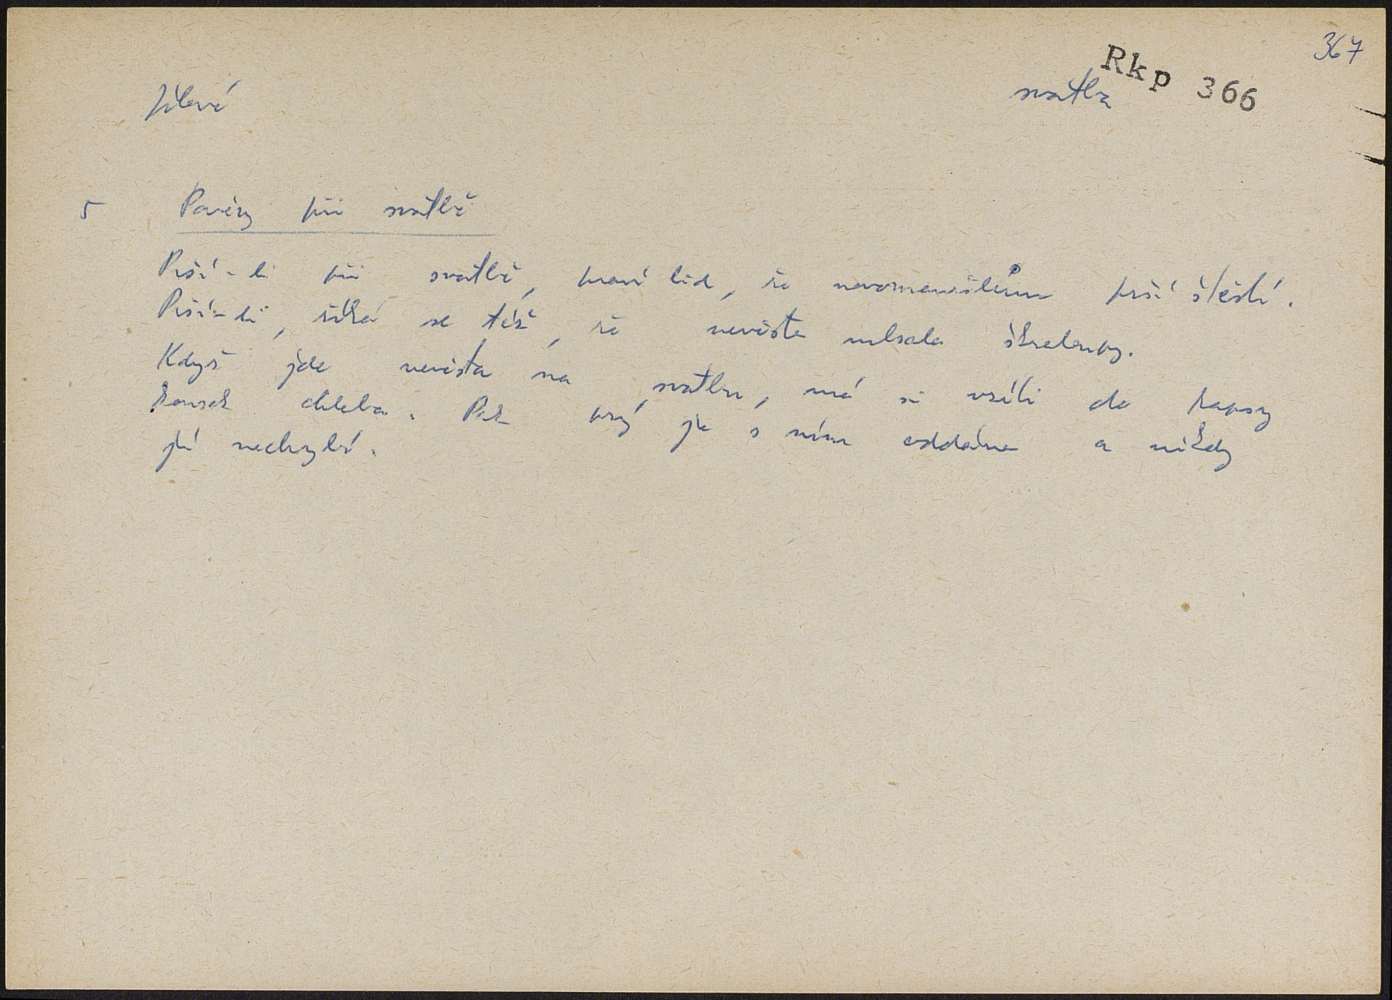 367
Rkp 366
Jílové
svatba
5 Pověry při svatbě
Prší-li při svatbě, praví lid, že novomanželům prší štěstí.
Prší-li, říká se též, že nevěsta mlsala škraloupy.
Když jde nevěsta na svatbu, má si vzíti do kapsy
kousek chleba. Pak prý je s ním oddána a nikdy
jí nechybí.